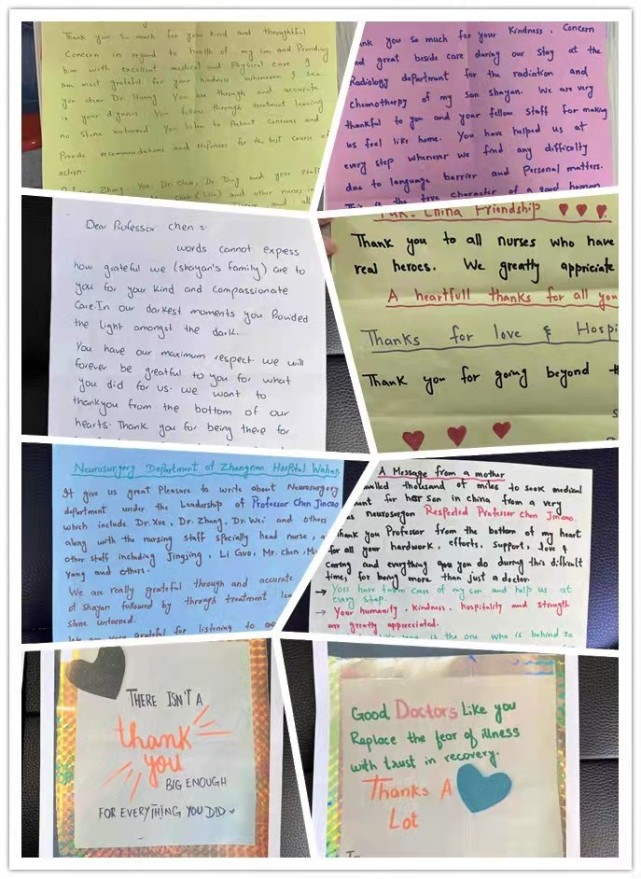 Thank you so much for your kind and thoughtful
Concern in regard to health of my son and Providing
him with excellent medical and Physical care. I
am most grateful for your kindness whenever I see
you dear Dr. Huang You are through and accurate
in your dignosis You follow through treatment leaving
no stone unturned You listen to Patient concerns and
Provide recommendations and responses for the best course of
action.
Zhang, Yee, Dr. Chen, Dr Ding and your staff
and other nurses in
ank you so much for your Kindness, Concern
nd great beside care during our stay at the
Radiology department for the radiation and
Chemotherpy of my son shayan. We are very
thankful to you and your fellow Staff for making
us feel like home. You have helped us at
every step whenever we find any difficulty
due to language barrier and Personal matters.
This is the true character of a good human
Dear Professor chen s
words cannot express
how grateful we (shayan's family) are to
you for your kind and compassionate
Care. In our darkest moments you Provided
the light amongst the dark.
You have our maximum respect we will
forever be greatful to you for what
you did for us. we want to
thankyou from the bottom of our
hearts. Thank you for being there for
Pak. China Friendship
Thank you to all nurses who have
real heroes. We greatly appriciate
A heartfull thanks for all you
Thanks for love & Hospi
Thank you for going beyond th
Neurosurgery Department of Zhongnan Hospital Wuhan
It give us great Pleasure to write about Neurosurgery
department under the Leadership of Professor Chen Jincao
which include Dr. Yee, Dr. Zhang, Dr. Wei and others
along with the nursing staff specially head nurse, a
other staff including Jingjing, Li Guo, Mr. Chen, M
Yang and others.
We are really grateful through and accurate
of Shayan followed by through treatment lea
stone unturned.
We are very grateful for listening to
A Message from a mother
velled thousand of miles to seek medical
ment for her son in china from a very
us neurosurgeon Respected Professor Chen Jincao.
hank you Professor from the bottom of my heart
for all your hardwork, efforts, support, love &
Caring and everything you do during this difficult
time, for being more than just a doctor.
→ You have taken care of my son and help us at
every step.
→ Your humanity, Kindness, hospitality and strength
are greatly appreciated.
is the one who is behind
THERE ISN'T A
thank
you
BIG ENOUGH
FOR EVERYTHING YOU DID
Good Doctors Like you
Replace the fear of illness
with trust in recovery.
Thanks A
Lot